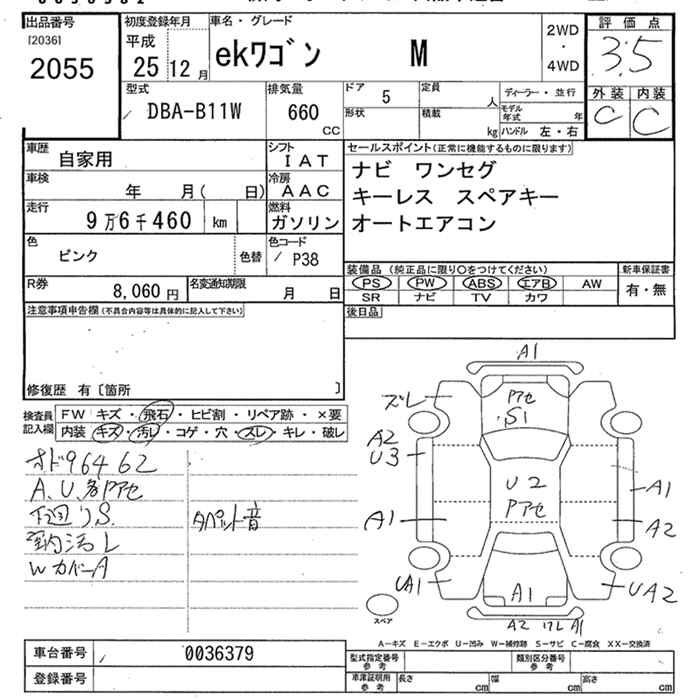 出品番号
[2036]
2055
初度登録年月
平成
25 12 月
車名・グレード
ekワゴン M
2WD
・
4WD
評価点
3.5
外装 内装
C C
型式
DBA-B11W
排気量
660
CC
ドア 5
形状
定員 人
積載 kg
ディーラー・並行
モデル年式 年
ハンドル 左・右
車歴 自家用
シフト IAT
車検 年 月( 日)
冷房 AAC
走行 9万6千460 km
燃料 ガソリン
色 ピンク 色替
色コード P38
R券 8,060 円
名変通知期限 月 日
セールスポイント(正常に機能するものに限ります)
ナビ ワンセグ
キーレス スペアキー
オートエアコン
装備品(純正品に限り○をつけてください)
PS PW ABS エアB AW
SR ナビ TV カワ
新車保証書
有・無
後日品
注意事項申告欄(不具合内容等は具体的に記入して下さい)
修復歴 有〔箇所 〕
検査員記入欄
FW キズ・飛石・ヒビ割・リペア跡・×要
内装 キズ・汚レ・コゲ・穴・スレ・キレ・破レ
オド96462
A、U、各アセ
下廻りS
タペット音
WカバーA
A1
ズレ
アセ
S1
A2
U3
U2
アセ
A1
A1
A2
UA1
A1
UA2
A2 ワレ A1
スペア
A-キズ E-エクボ U-凹み W-補修跡 S-サビ C-腐食 XX-交換済
車台番号 0036379
登録番号
型式指定番号 参考
類別区分番号 参考
車庫証明用 参考
長さ cm 幅 cm 高さ cm